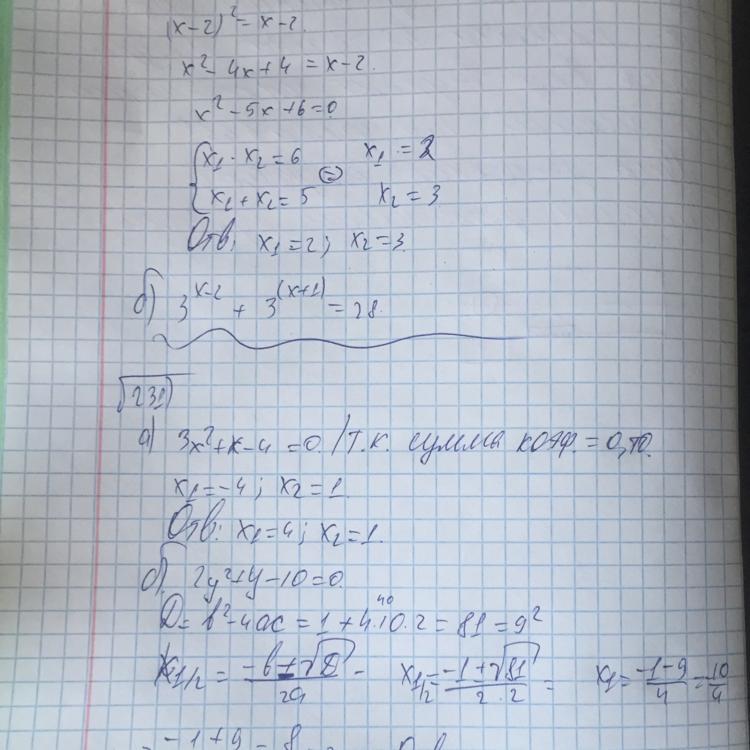 (x-2)² = x-2.
x² - 4x + 4 = x-2.
x² - 5x + 6 = 0
{ x₁ · x₂ = 6 x₁ = 2
x₁ + x₂ = 5 ⇔ x₂ = 3
Отв: x₁ = 2; x₂ = 3
б) 3^(x-2) + 3^(x+1) = 28
231
а) 3x² + x - 4 = 0. / т.к. сумма коэф. = 0, то.
x₁ = -4; x₂ = 1.
Отв: x₁ = 4; x₂ = 1.
б) 2y² + y - 10 = 0.
D = b² - 4ac = 1 + 4·10·2 = 81 = 9²
40
x₁/₂ = (-b ± √D)/2a - x₁/₂ = (-1 ± √81)/(2·2) = x₁ = (-1-9)/4 = 10/4
= -1+9 = 8